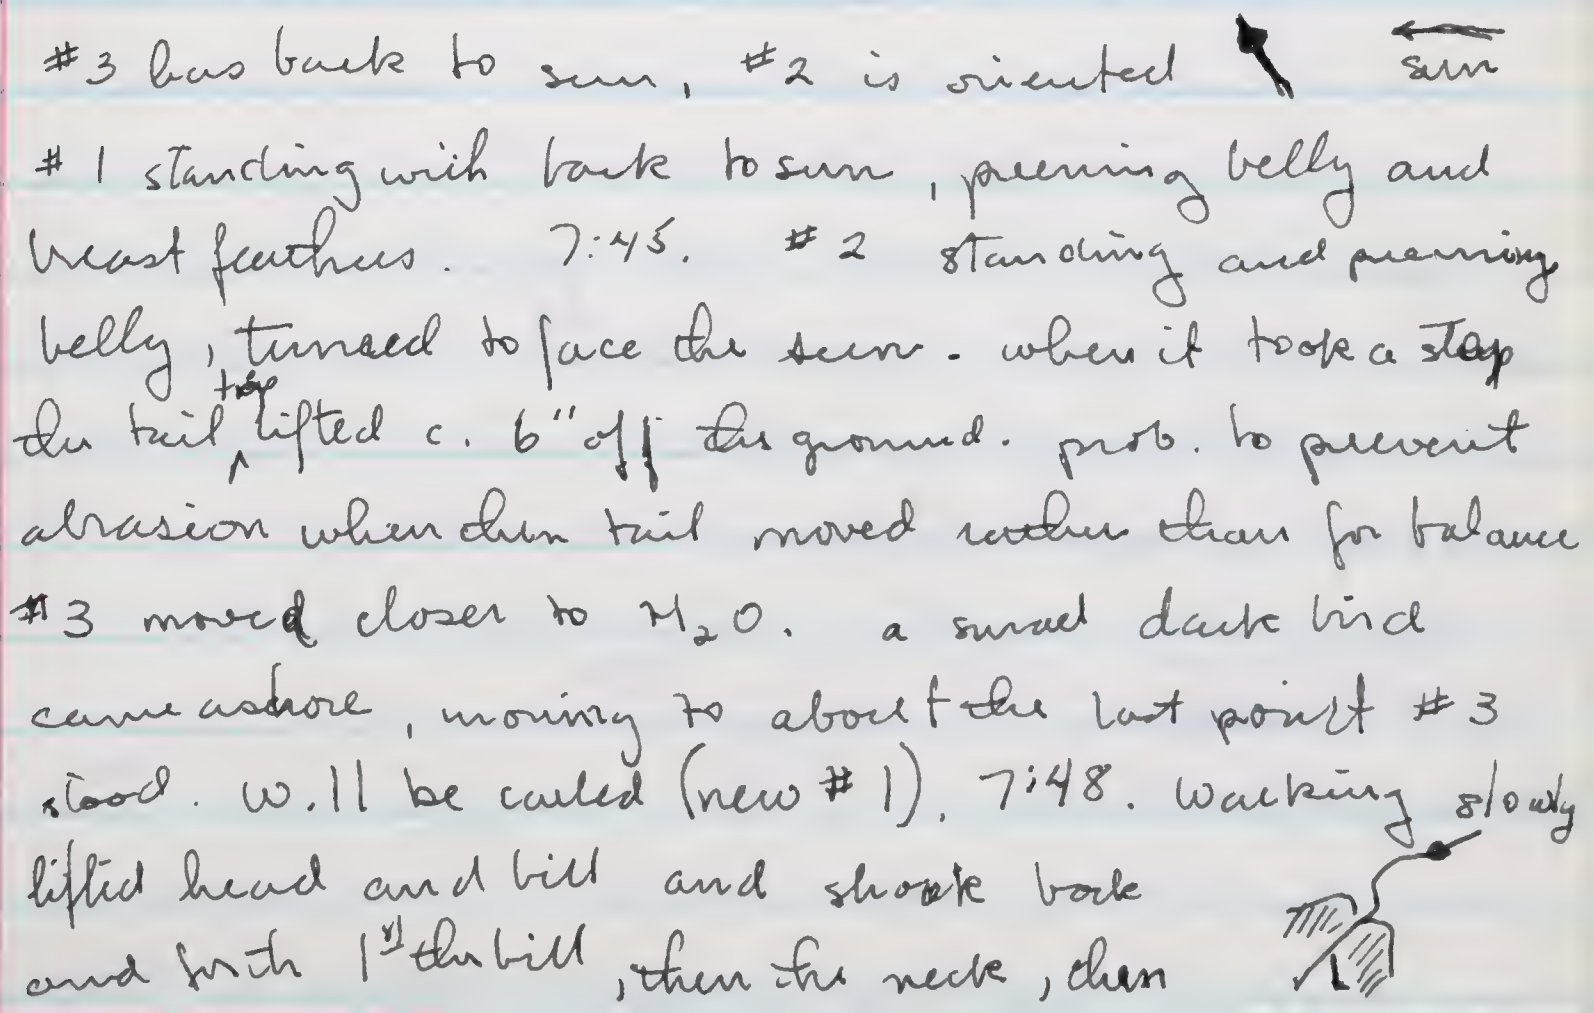 #3 has back to sun, #2 is oriented sun
#1 standing with back to sun, preening belly and
breast feathers. 7:45. #2 standing and preening
belly, turned to face the sun - when it took a step
the tail tip lifted c. 6" off the ground. prob. to prevent
abrasion when the tail moved rather than for balance
#3 moved closer to H2O. a small dark bird
came ashore, moving to about the last point #3
stood. will be called (new #1). 7:48. Walking slowly
lifted head and bill and shook back
and forth 1st the bill, then the neck, then